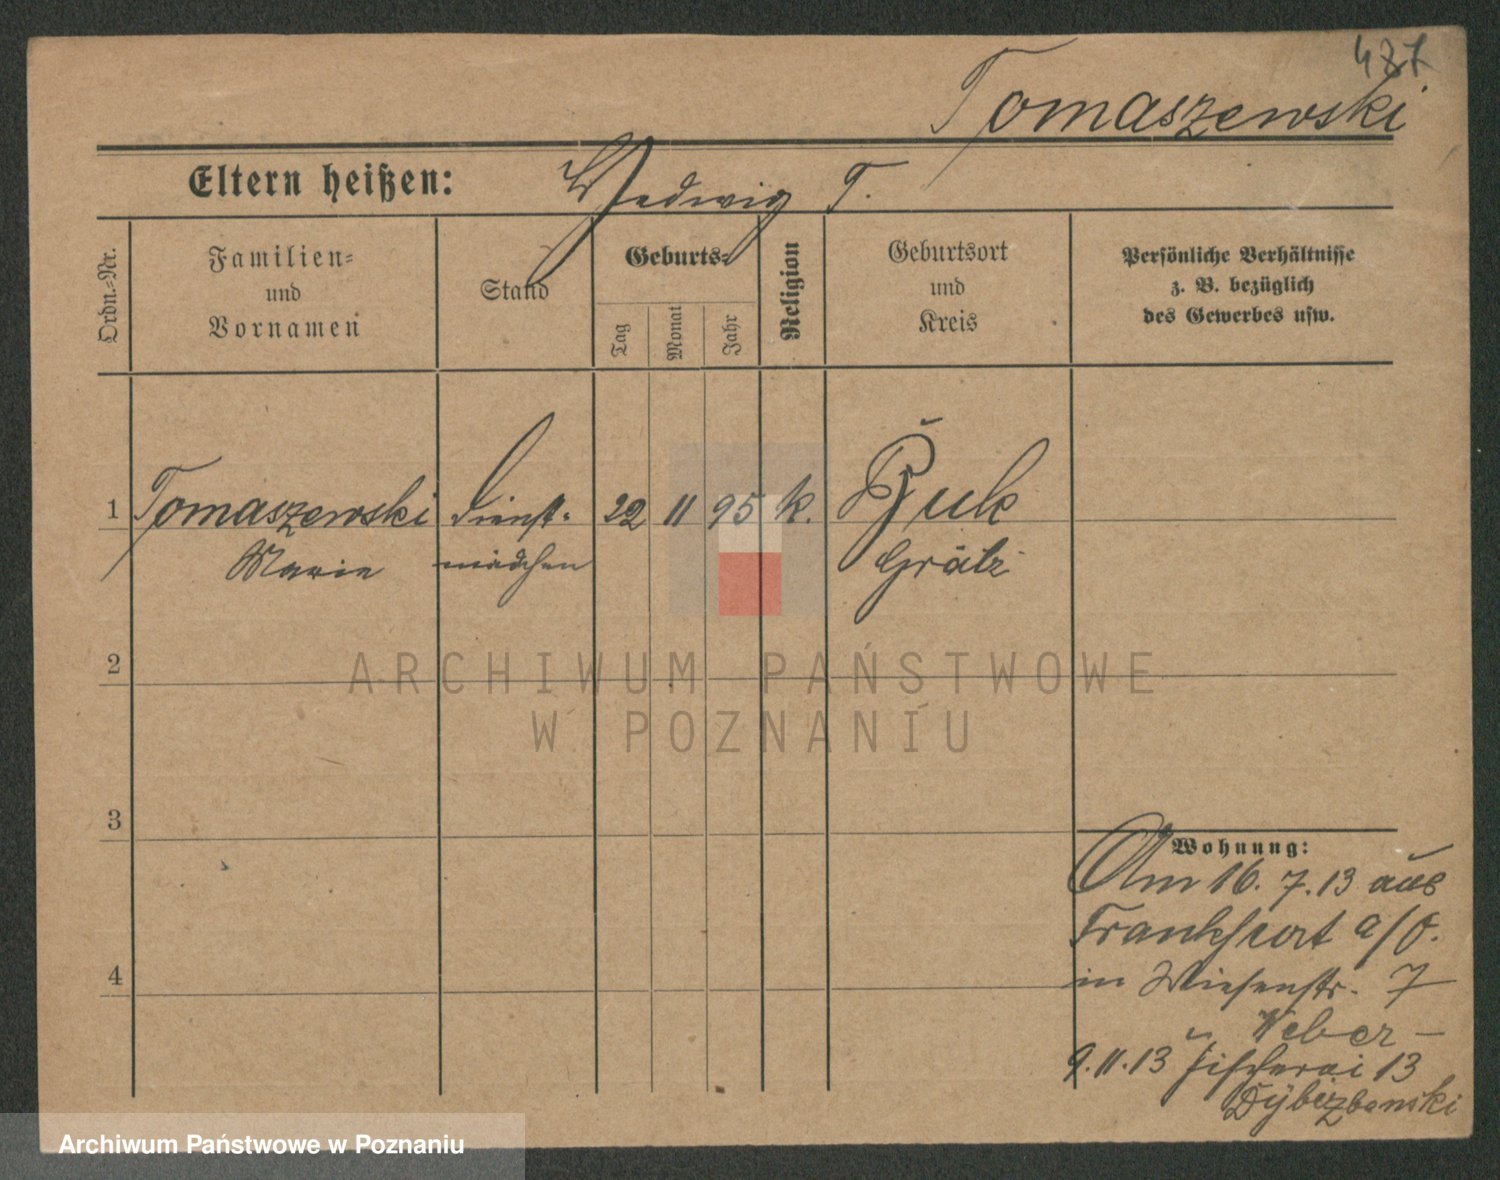 487
Tomaszewski
Eltern heißen: Hedwig T.
Ordn.-Nr.
Familien- und Vornamen
Stand
Geburts-
Tag
Monat
Jahr
Religion
Geburtsort und Kreis
Persönliche Verhältnisse
z. B. bezüglich
des Gewerbes usw.
1 Tomaszewski Dienst- 22 11 95 k. Buk
Marie mädchen Grätz
2
ARCHIWUM PAŃSTWOWE
W POZNANIU
3
Wohnung:
Am 16. 7. 13 aus
Frankfurt a/O.
in Wiesenstr. 7
Weber -
4
9. 11. 13 Fischerei 13
Dybizbanski
Archiwum Państwowe w Poznaniu